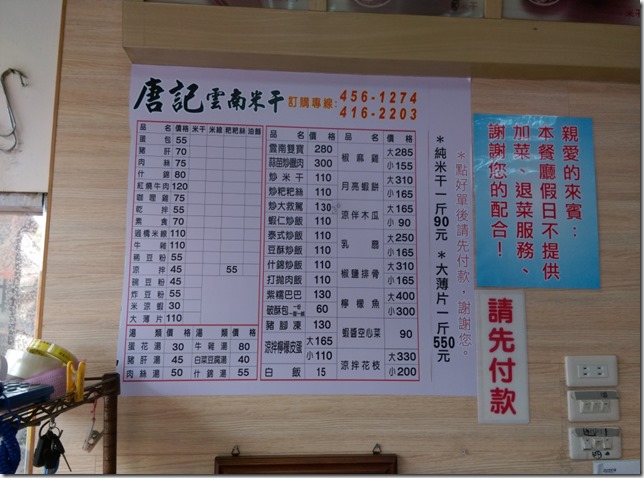 唐記雲南米干 訂購專線：456-1274
416-2203
品名 價格 米干 米線 粑粑絲 油麵
蛋包 55
豬肝 70
肉絲 75
什錦 80
紅燒牛肉 120
咖哩雞 75
乾拌 55
素食 70
過橋米線 110
牛雜 110
稀豆粉 55
涼拌 45 55
豌豆粉 45
炸豆粉 55
米涼蝦 30
大薄片 110
湯類 價格 湯類 價格
蛋花湯 30 牛雜湯 80
豬肝湯 45 白菜豆腐湯 40
肉絲湯 50 什錦湯 55
品名 價格 品名 價格
雲南雙寶 280
蒜苗炒臘肉 300
炒米干 110
炒粑粑絲 110
炒大救駕 130
蝦仁炒飯 110
泰式炒飯 110
豆酥炒飯 110
什錦炒飯 110
打拋肉飯 110
紫糯巴巴 130
破酥包 60
豬腳凍 130
涼拌檸檬皮蛋 大165
小110
白飯 15
椒麻雞 大285
小155
月亮蝦餅 大310
小165
涼拌木瓜 大165
小90
乳扇 大250
小165
椒鹽排骨 大310
小165
檸檬魚 大400
小300
蝦醬空心菜 90
涼拌花枝 大330
小200
*點好單後請先付款，謝謝您。
*純米干一斤90元 *大薄片一斤550元
親愛的來賓：
本餐廳假日不提供
加菜、退菜服務、
謝謝您的配合！
請先付款